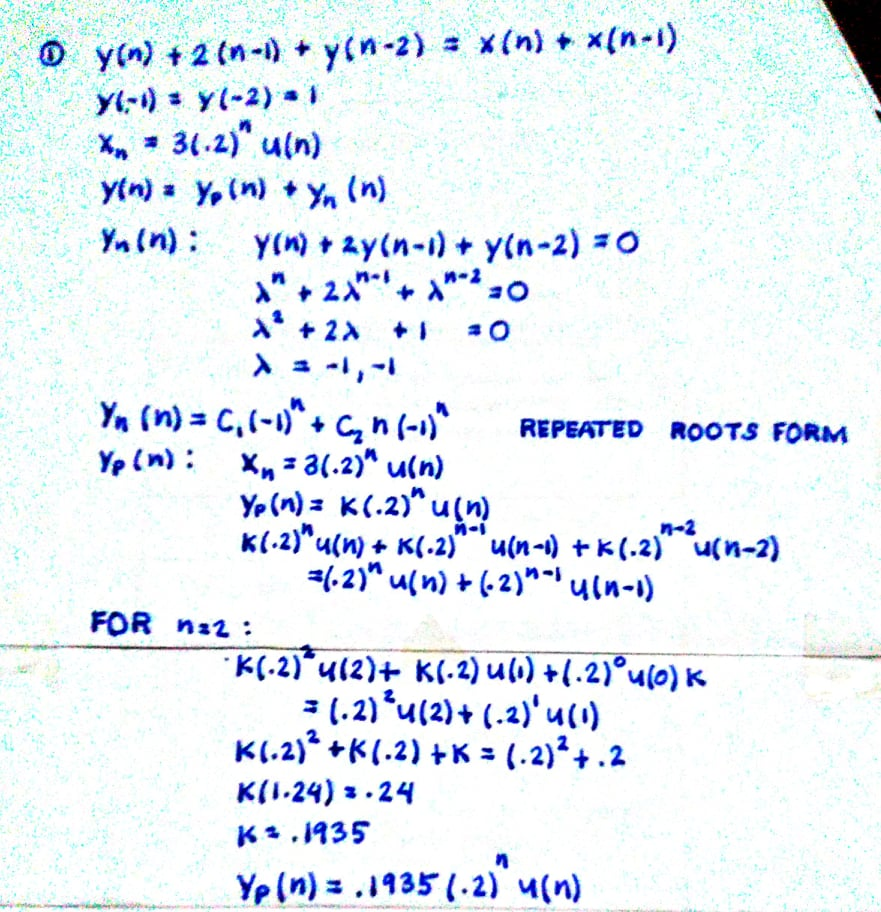 ① y(n) + 2(n-1) + y(n-2) = x(n) + x(n-1)
y(-1) = y(-2) = 1
xₙ = 3(.2)ⁿ u(n)
y(n) = yₚ(n) + yₙ(n)
yₙ(n): y(n) + 2y(n-1) + y(n-2) = 0
λⁿ + 2λⁿ⁻¹ + λⁿ⁻² = 0
λ² + 2λ + 1 = 0
λ = -1, -1
yₙ(n) = C₁(-1)ⁿ + C₂ n(-1)ⁿ REPEATED ROOTS FORM
yₚ(n): xₙ = 3(.2)ⁿ u(n)
yₚ(n) = K(.2)ⁿ u(n)
K(.2)ⁿ u(n) + K(.2)ⁿ⁻¹ u(n-1) + K(.2)ⁿ⁻² u(n-2)
=(.2)ⁿ u(n) + (.2)ⁿ⁻¹ u(n-1)
FOR n=2:
K(.2)² u(2) + K(.2) u(1) + (.2)⁰ u(0) K
= (.2)² u(2) + (.2)¹ u(1)
K(.2)² + K(.2) + K = (.2)² + .2
K(1.24) = .24
K = .1935
yₚ(n) = .1935 (.2)ⁿ u(n)